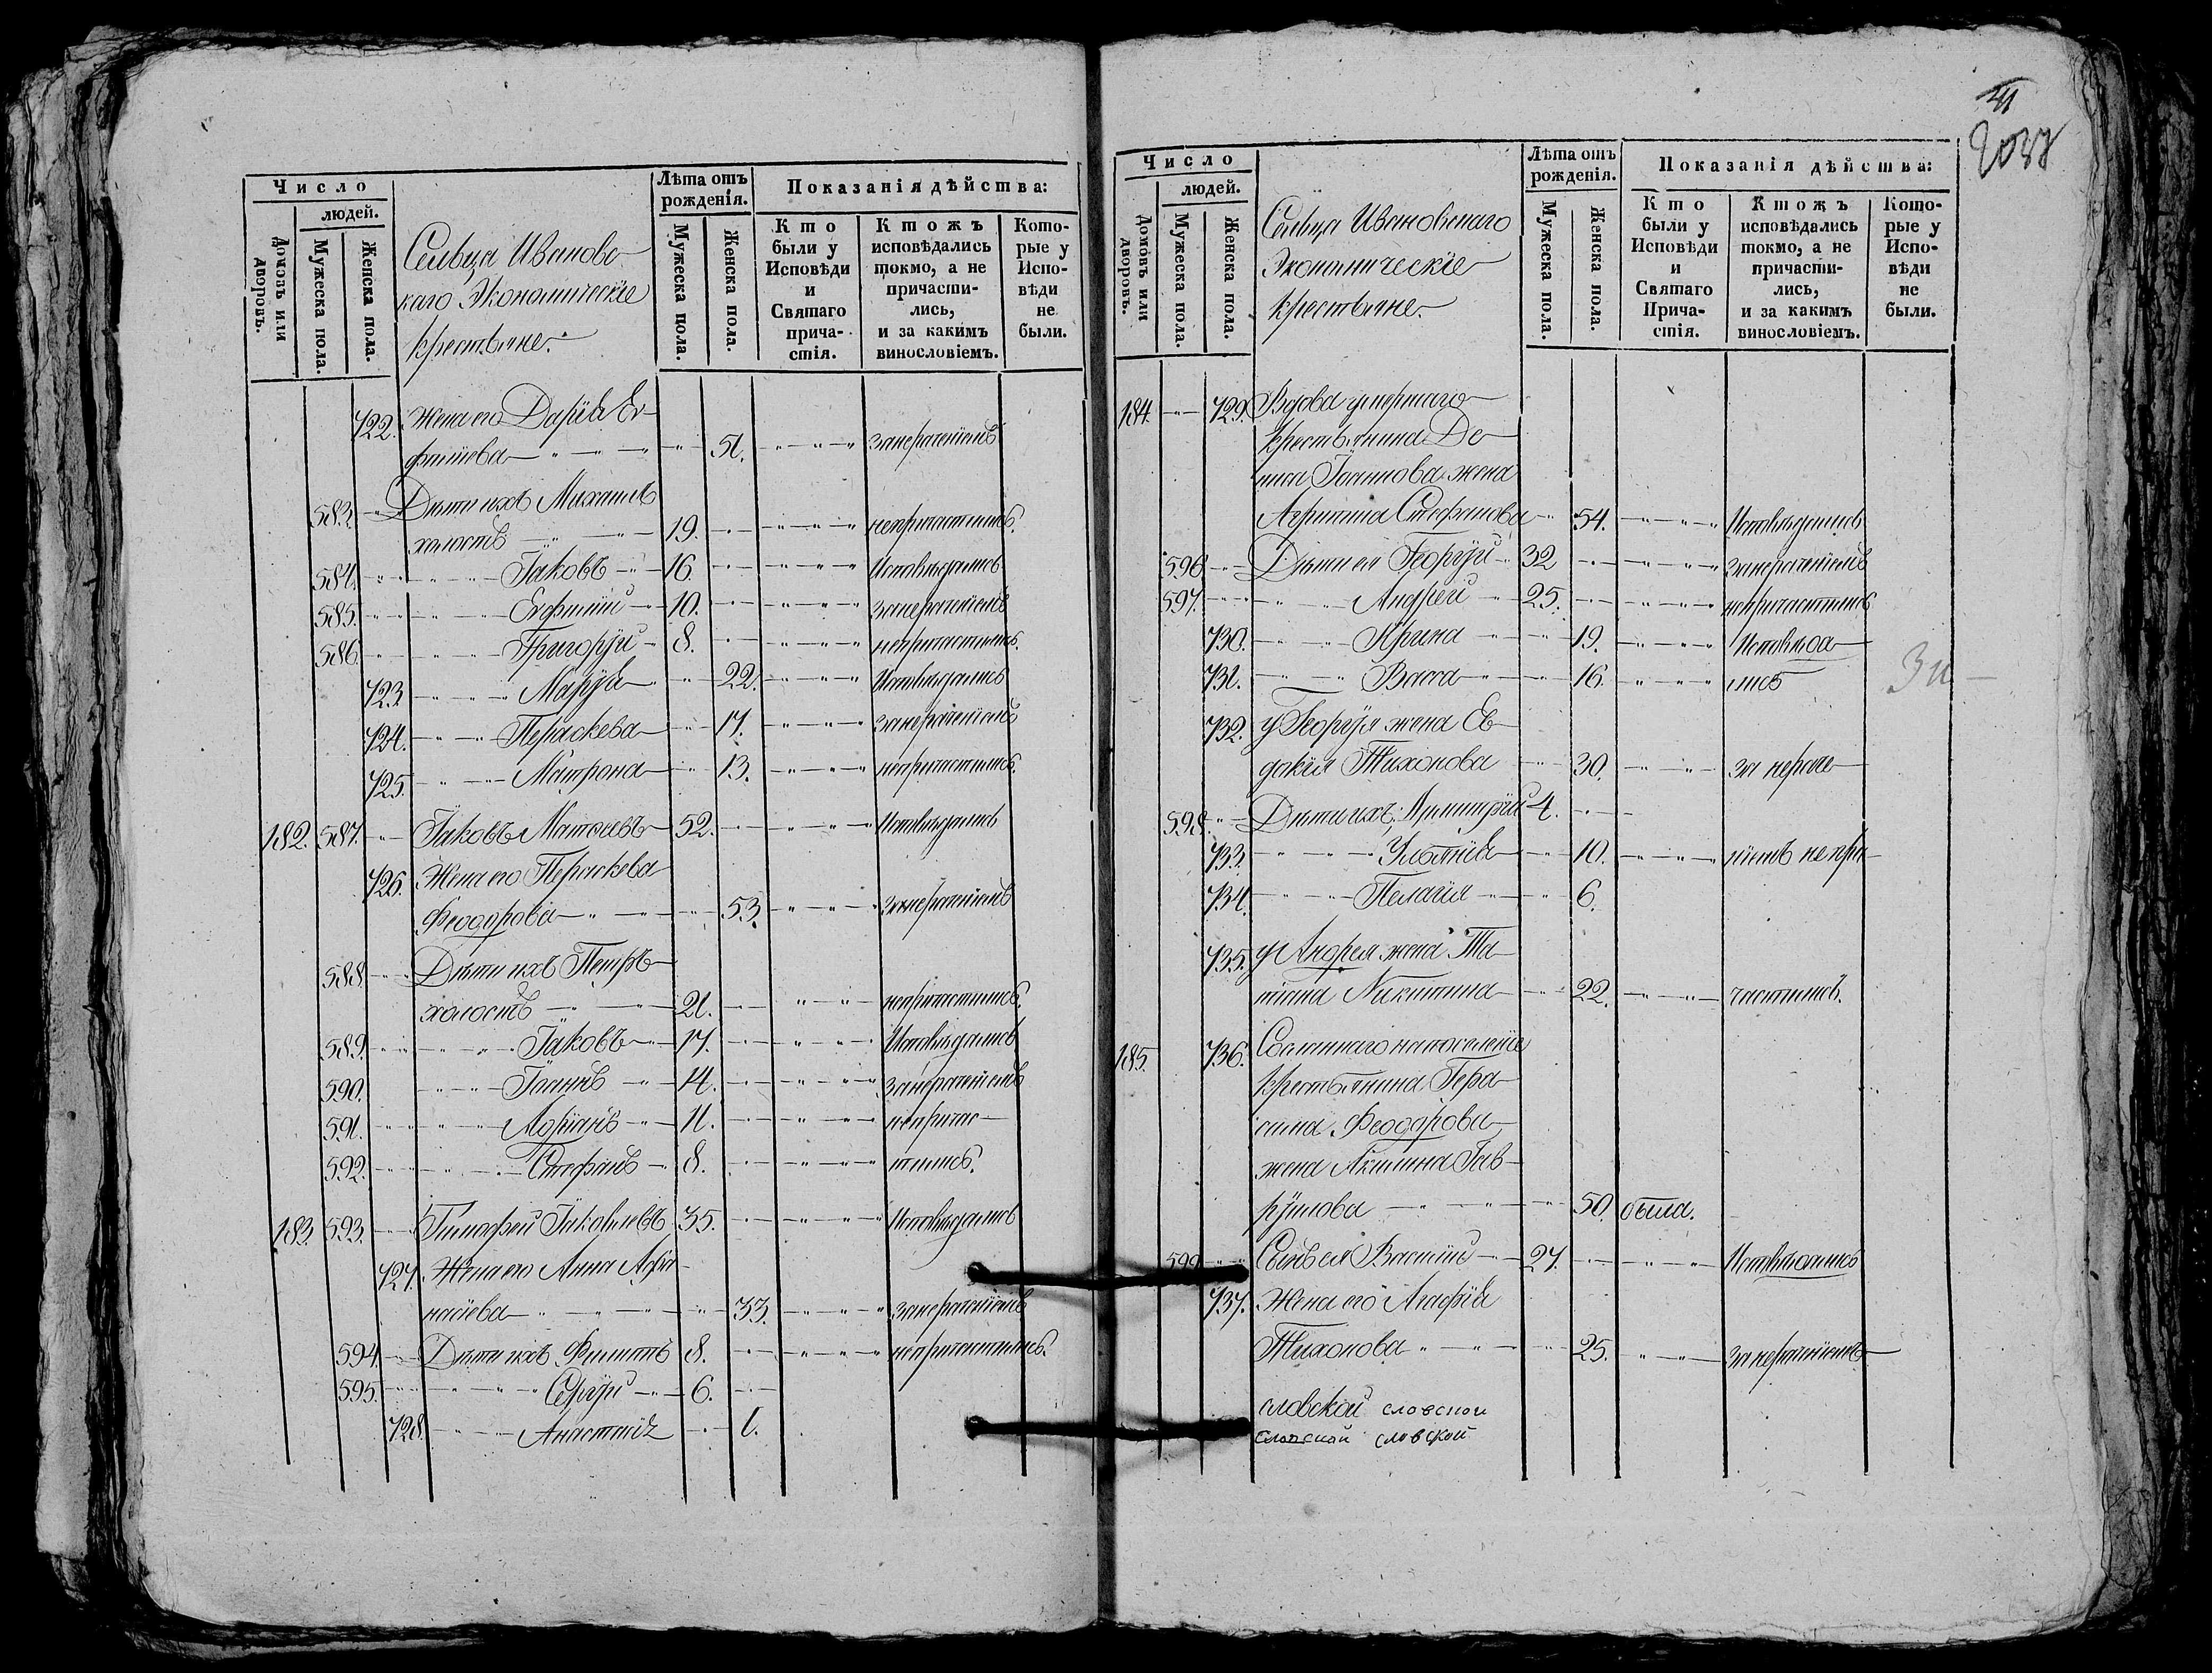 Число
людей.
Домовъ или дворовъ.
Мужеска пола.
Женска пола.
Сельца Ивановс-
каго Экономическіе
крестьяне.
Лѣта отъ рожденія.
Мужеска пола.
Женска пола.
Показанія дѣйства:
Кто были у Исповѣди и Святаго причастія.
Ктожъ исповѣдались токмо, а не причастились, и за какимъ винословіемъ.
Которые у Исповѣди не были.
722. Жена его Дарія Ев-
фиміева 51. занераченіемъ
583. Дѣти ихъ Михаилъ
холостъ 19. непричастились.
584. Іаковъ 16. Исповѣдались
585. Евфимій 10. занераченіемъ
586. Григорій 8. непричастились.
723. Марія 22. Исповѣдались
724. Параскева 17. занераченіемъ
725. Матрона 13. непричастились.
182. 587. Іаковъ Матвіевъ 52. Исповѣдались
726. Жена его Параскева
Феодорова 53. занераченіемъ
588. Дѣти ихъ Петръ
холостъ 21. непричастились.
589. Іаковъ 17. Исповѣдались
590. Іоаннъ 14. занераченіемъ
591. 11. непричас-
592. Стефанъ 8. тились.
183. 593. Тимофей Іаковлевъ 35. Исповѣдались
727. Жена его Анна Афа-
насіева 33. занераченіемъ
594. Дѣти ихъ Филиппъ 8. непричастились.
595. Сергій 6.
728. Анастасія 1.
Число
людей.
Домовъ или дворовъ.
Мужеска пола.
Женска пола.
Сельца Ивановскаго
Экономическіе
крестьяне.
Лѣта отъ рожденія.
Мужеска пола.
Женска пола.
Показанія дѣйства:
Кто были у Исповѣди и Святаго Причастія.
Ктожъ исповѣдались токмо, а не причастились, и за какимъ винословіемъ.
Которые у Исповѣди не были.
184. 729. Вдова умершаго
крестьянина Де-
ниса Іоаннова жена
Агрипина Стефанова 54. Исповѣдались
596. Дѣти ея Георгій 32 занераченіемъ
597. Андрей 25. непричастились
730. Ирина 19. Исповѣда-
731. Васса 16. лись
732. у Георгія жена Ев-
докія Тихонова 30. за нераче-
598. Дѣти ихъ: Димитрій 4.
733. Ульянія 10. ніемъ непри-
734. Пелагія 6.
735. у Андрея жена Та-
тіана Никитина 22. частились.
185. 736. Сосланнаго на поселеніе
крестьянина Гера-
сима Феодорова
жена Акилина Гав-
риілова 50. была.
599. Сынъ ея Василій 27. Исповѣдались
737. Жена его Агафія
Тихонова 25. занераченіемъ
словской словской
словской словской